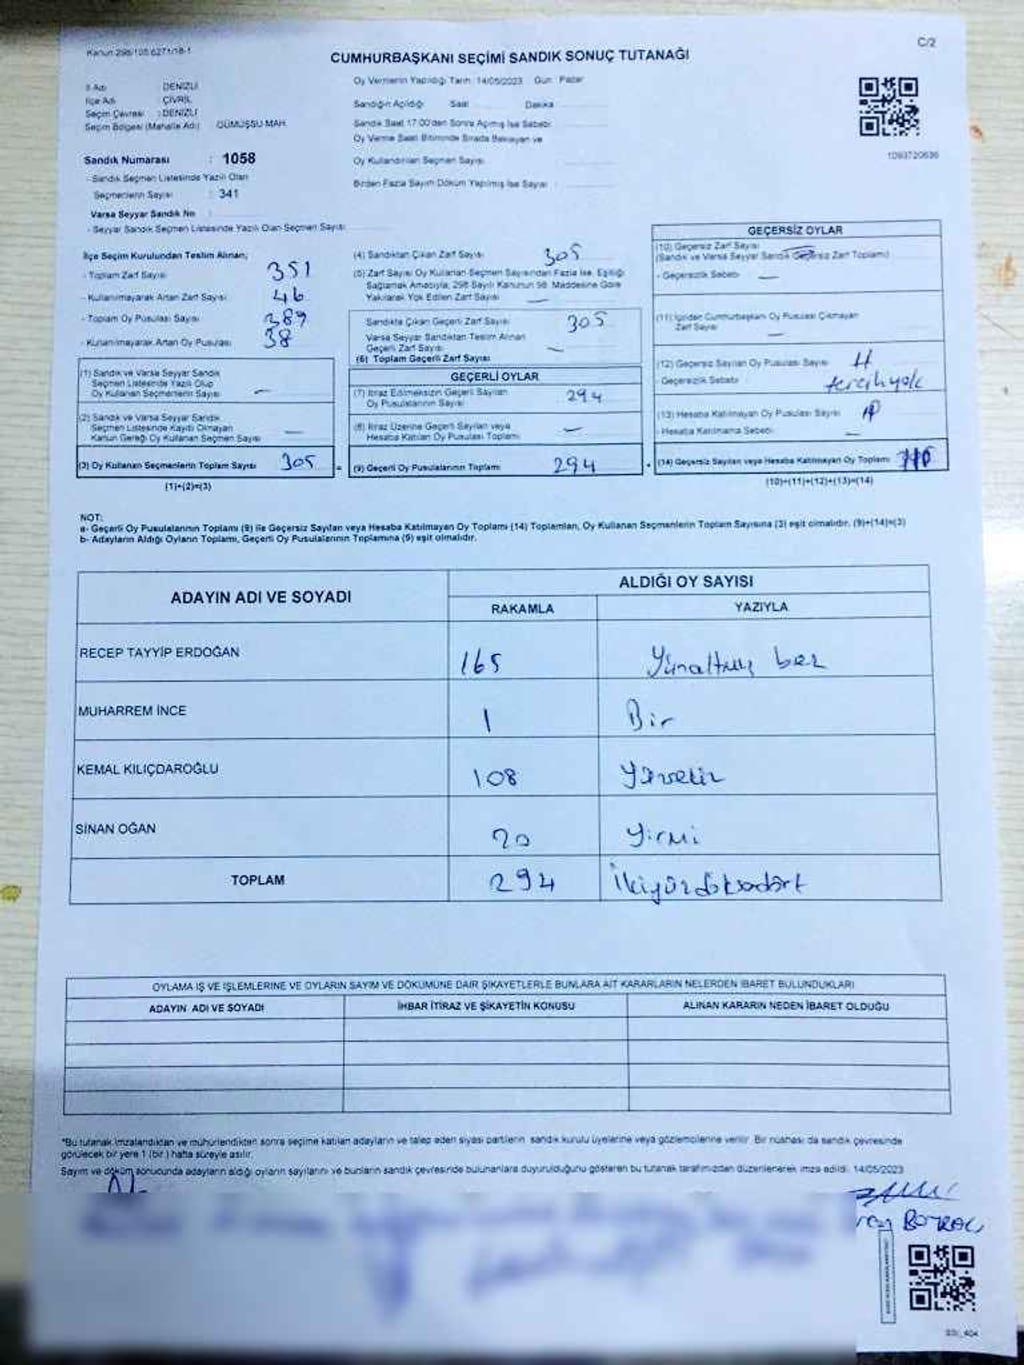 Kanun 298/105 6271/18-1
C/2
CUMHURBAŞKANI SEÇİMİ SANDIK SONUÇ TUTANAĞI
İl Adı DENİZLİ
İlçe Adı ÇİVRİL
Seçim Çevresi : DENİZLİ
Seçim Bölgesi (Mahalle Adı) GÜMÜŞSU MAH.
Sandık Numarası : 1058
- Sandık Seçmen Listesinde Yazılı Olan
Seçmenlerin Sayısı : 341
Varsa Seyyar Sandık No
- Seyyar Sandık Seçmen Listesinde Yazılı Olan Seçmen Sayısı
Oy Vermenin Yapıldığı Tarih: 14/05/2023 Gün: Pazar
Sandığın Açıldığı Saat Dakika
Sandık Saat 17:00'den Sonra Açılmış İse Sebebi
Oy Verme Saati Bitiminde Sırada Bekleyen ve
Oy Kullandırılan Seçmen Sayısı
Birden Fazla Sayım Döküm Yapılmış İse Sayısı
1093720636
İlçe Seçim Kurulundan Teslim Alınan;
- Toplam Zarf Sayısı 351
- Kullanılmayarak Artan Zarf Sayısı 46
- Toplam Oy Pusulası Sayısı 389
- Kullanılmayarak Artan Oy Pusulası 38
(1) Sandık ve Varsa Seyyar Sandık
Seçmen Listesinde Yazılı Olup
Oy Kullanan Seçmenlerin Sayısı —
(2) Sandık ve Varsa Seyyar Sandık
Seçmen Listesinde Kaydı Olmayan
Kanun Gereği Oy Kullanan Seçmen Sayısı —
(3) Oy Kullanan Seçmenlerin Toplam Sayısı 305
(1)+(2)=(3)
(4) Sandıktan Çıkan Zarf Sayısı 305
(5) Zarf Sayısı Oy Kullanan Seçmen Sayısından Fazla İse, Eşitliği
Sağlamak Amacıyla; 298 Sayılı Kanunun 98. Maddesine Göre
Yakılarak Yok Edilen Zarf Sayısı —
Sandıkta Çıkan Geçerli Zarf Sayısı 305
Varsa Seyyar Sandıktan Teslim Alınan
Geçerli Zarf Sayısı —
(6) Toplam Geçerli Zarf Sayısı
GEÇERLİ OYLAR
(7) İtiraz Edilmeksizin Geçerli Sayılan
Oy Pusulalarının Sayısı 294
(8) İtiraz Üzerine Geçerli Sayılan veya
Hesaba Katılan Oy Pusulası Toplamı —
= (9) Geçerli Oy Pusulalarının Toplamı 294
GEÇERSİZ OYLAR
(10) Geçersiz Zarf Sayısı
(Sandık ve Varsa Seyyar Sandık Geçersiz Zarf Toplamı)
- Geçersizlik Sebebi —
(11) İçinden Cumhurbaşkanı Oy Pusulası Çıkmayan
Zarf Sayısı —
(12) Geçersiz Sayılan Oy Pusulası Sayısı 11
- Geçersizlik Sebebi tercih yok
(13) Hesaba Katılmayan Oy Pusulası Sayısı
- Hesaba Katılmama Sebebi —
(14) Geçersiz Sayılan veya Hesaba Katılmayan Oy Toplamı
(10)+(11)+(12)+(13)=(14)
NOT:
a- Geçerli Oy Pusulalarının Toplamı (9) ile Geçersiz Sayılan veya Hesaba Katılmayan Oy Toplamı (14) Toplamları, Oy Kullanan Seçmenlerin Toplam Sayısına (3) eşit olmalıdır. (9)+(14)=(3)
b- Adayların Aldığı Oyların Toplamı, Geçerli Oy Pusulalarının Toplamına (9) eşit olmalıdır.
ADAYIN ADI VE SOYADI ALDIĞI OY SAYISI
RAKAMLA YAZIYLA
RECEP TAYYİP ERDOĞAN 165 Yüzaltmış beş
MUHARREM İNCE 1 Bir
KEMAL KILIÇDAROĞLU 108 Yüzsekiz
SİNAN OĞAN 20 Yirmi
TOPLAM 294 İkiyüzdoksandört
OYLAMA İŞ VE İŞLEMLERİNE VE OYLARIN SAYIM VE DÖKÜMÜNE DAİR ŞİKAYETLERLE BUNLARA AİT KARARLARIN NELERDEN İBARET BULUNDUKLARI
ADAYIN ADI VE SOYADI İHBAR İTİRAZ VE ŞİKAYETİN KONUSU ALINAN KARARIN NEDEN İBARET OLDUĞU
*Bu tutanak imzalandıktan ve mühürlendikten sonra seçime katılan adayların ve talep eden siyasi partilerin sandık kurulu üyelerine veya gözlemcilerine verilir. Bir nüshası da sandık çevresinde
görülecek bir yere 1 (bir) hafta süreyle asılır.
Sayım ve döküm sonucunda adayların aldığı oyların sayılarını ve bunların sandık çevresinde bulunanlara duyurulduğunu gösteren bu tutanak tarafımızdan düzenlenerek imza edildi. 14/05/2023